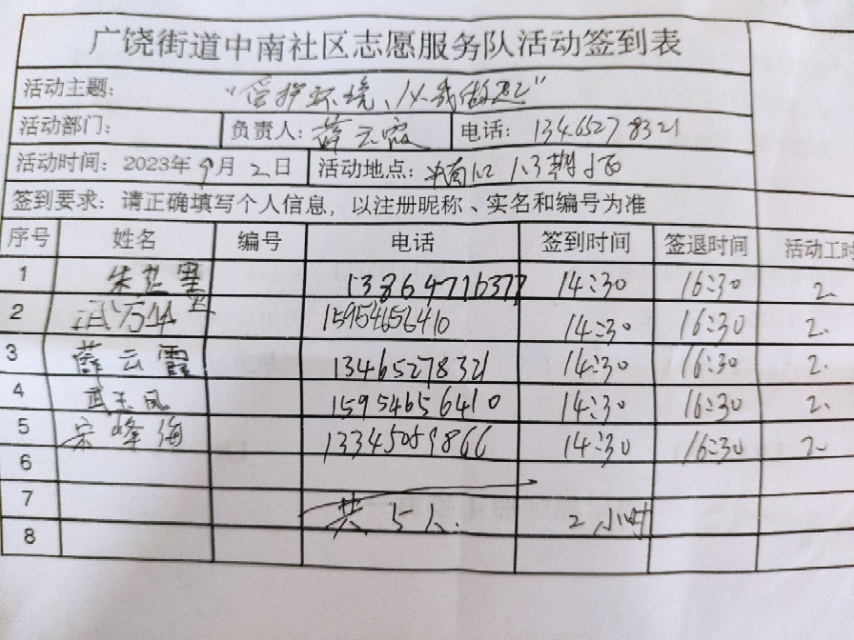 广饶街道中南社区志愿服务队活动签到表
活动主题: “爱护环境、从我做起”
活动部门: 负责人: 薛云霞 电话: 13465278321
活动时间: 2023年9月2日 活动地点: 1.3期小区
签到要求: 请正确填写个人信息, 以注册昵称、实名和编号为准
序号 姓名 编号 电话 签到时间 签退时间 活动工时
1 朱 13864716377 14:30 16:30 2.
2 武 15954656410 14:30 16:30 2.
3 薛云霞 13465278321 14:30 16:30 2.
4 武 15954656410 14:30 16:30 2.
5 宋峰海 13345059866 14:30 16:30 2
6
7 共5人. 2小时
8